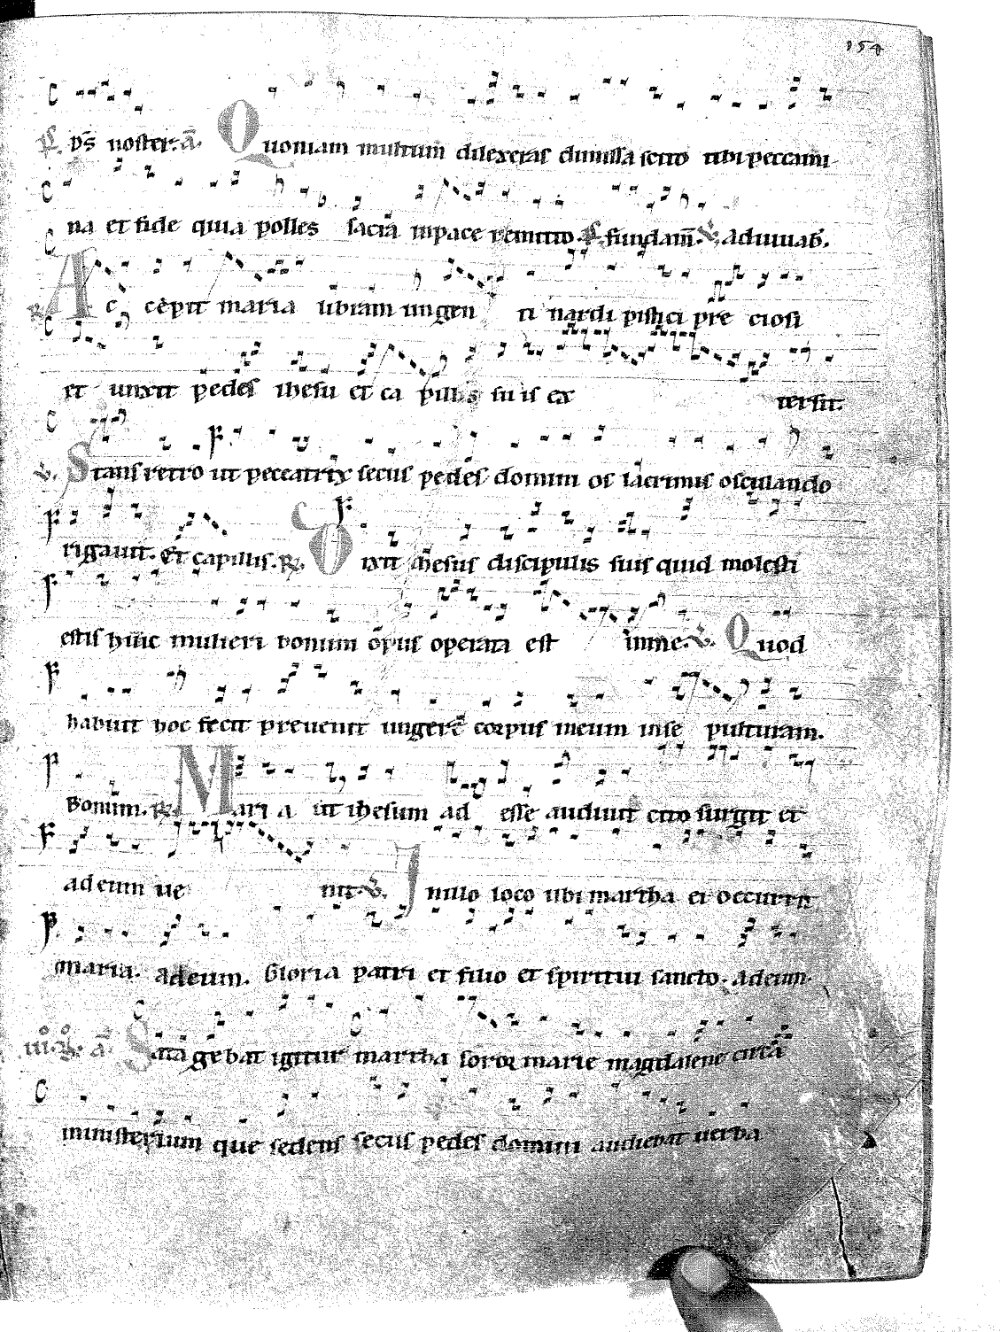 154
p̃s. Ds̄ noster. a͞. Quoniam multum dilexeras dimissa sento tibi peccami
na et fide qua polles sacia͞ inpace remitto. p̃s. fundam̄. v. adiuuab̄.
R. Ac cepit maria libram ungen ti nardi pistici pre ciosi
et unxit pedes ihesu et ca pillis su is ex tersit.
v. Stans retro ut peccatrix secus pedes domini os lacrimis osculando
rigauit. Et capillis. R. Dixit ihesus discipulis suis quid molesti
estis huic mulieri bonum opus operata est inme. v. Quod
habuit hoc fecit preuenit ungere͞ corpus meum inse pulturam.
Bonum. R. Mari a ut ihesum ad esse audiuit cito surgit et
adeum ue nit. v. Inillo loco ubi martha ei occurrit
maria. adeum. Gloria patri et filio et spiritui sancto. adeum.
iii. n̊. a͞. Sata gebat igitur martha soror marie magdalene circa͞
ministerium que sedens secus pedes domini audiebat uerba